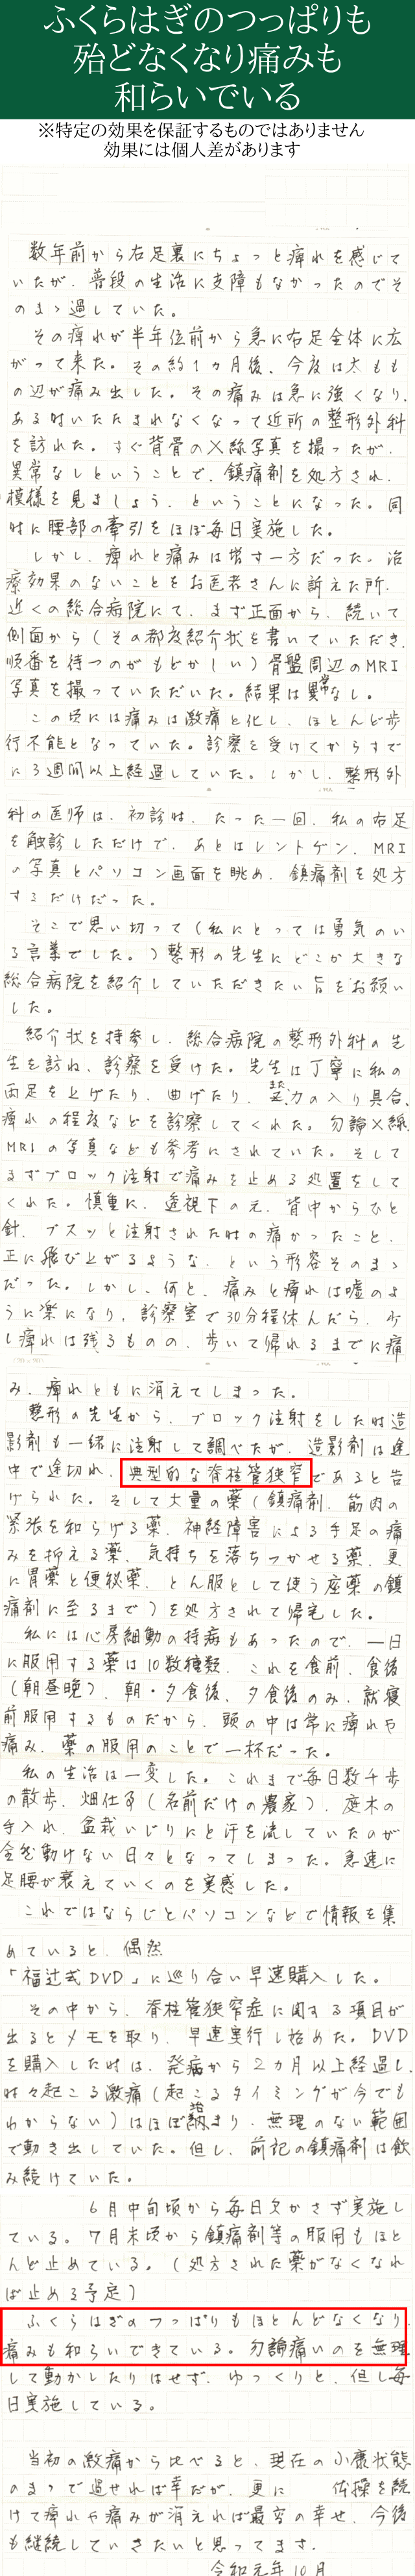 ふくらはぎのつっぱりも
殆どなくなり痛みも
和らいでいる
※特定の効果を保証するものではありません
効果には個人差があります
数年前から右足裏にちょっと痺れを感じて
いたが、普段の生活に支障もなかったのでそ
のまゝ過していた。
その痺れが半年位前から急に右足全体に広
がって来た。その約1ヵ月後、今度は太もも
の辺が痛み出した。その痛みは急に強くなり、
ある時いたたまれなくなって近所の整形外科
を訪れた。すぐ背骨のX線写真を撮ったが、
異常なしということで、鎮痛剤を処方され、
模様を見ましょう、ということになった。同
時に腰部の牽引をほぼ毎日実施した。
しかし、痺れと痛みは増す一方だった。治
療効果のないことをお医者さんに訴えた所、
近くの総合病院にて、まず正面から、続いて
側面から(その都度紹介状を書いていただき、
順番を待つのがもどかしい)骨盤周辺のMRI
写真を撮っていただいた。結果は異常なし。
この頃には痛みは激痛と化し、ほとんど歩
行不能となっていた。診察を受けてからすで
に3週間以上経過していた。しかし、整形外
科の医師は、初診時、たった一回、私の右足
を触診しただけで、あとはレントゲン、MRI
の写真とパソコン画面を眺め、鎮痛剤を処方
するだけだった。
そこで思い切って(私にとっては勇気のい
る言葉でした。)整形の先生にどこか大きな
総合病院を紹介していただきたい旨をお願い
した。
紹介状を持参し、総合病院の整形外科の先
生を訪ね、診察を受けた。先生は丁寧に私の
両足を上げたり、曲げたり、また、力の入り具合、
痺れの程度などを診察してくれた。勿論X線、
MRIの写真なども参考にされていた。そして
まずブロック注射で痛みを止める処置をして
くれた。慎重に、透視下の元、背中からひと
針、ブスッと注射された時の痛かったこと、
正に飛び上がるような、という形容そのまゝ
だった。しかし、何と、痛みと痺れは嘘のよ
うに楽になり、診察室で30分程休んだら、少
し痺れは残るものの、歩いて帰れるまでに痛
み、痺れともに消えてしまった。
整形の先生から、ブロック注射をした時造
影剤も一緒に注射して調べたが、造影剤は途
中で途切れ、典型的な脊柱管狭窄であると告
げられた。そして大量の薬(鎮痛剤、筋肉の
緊張を和らげる薬、神経障害による手足の痛
みを抑える薬、気持ちを落ちつかせる薬、更
に胃薬と便秘薬、とん服として使う座薬の鎮
痛剤に至るまで)を処方されて帰宅した。
私には心房細動の持病もあったので、一日
に服用する薬は10数種類、これを食前、食後
(朝昼晩)、朝・夕食後、夕食後のみ、就寝
前服用するものだから、頭の中は常に痺れや
痛み、薬の服用のことで一杯だった。
私の生活は一変した。これまで毎日数千歩
の散歩、畑仕事(名前だけの農家)、庭木の
手入れ、盆栽いじりにと汗を流していたのが
全然動けない日々となってしまった。急速に
足腰が衰えていくのを実感した。
これではならじとパソコンなどで情報を集
めていると、偶然
「福辻式DVD」に巡り合い早速購入した。
その中から、脊柱管狭窄症に関する項目が
出るとメモを取り、早速実行し始めた。DVD
を購入した時は、発病から2カ月以上経過し、
時々起こる激痛(起こるタイミングが今でも
わからない)はほぼ治まり、無理のない範囲
で動き出していた。但し、前記の鎮痛剤は飲
み続けていた。
6月中旬頃から毎日欠かさず実施し
ている。7月末頃から鎮痛剤等の服用もほと
んど止めている。(処方された薬がなくなれ
ば止める予定)
ふくらはぎのつっぱりもほとんどなくなり、
痛みも和らいできている。勿論痛いのを無理
して動かしたりはせず、ゆっくりと、但し毎
日実施している。
当初の激痛から比べると、現在の小康状態
のまゝで過せれば幸だが、更に 体操を続
けて痺れや痛みが消えれば最高の幸せ、今後
も継続していきたいと思ってます。
令和元年10月